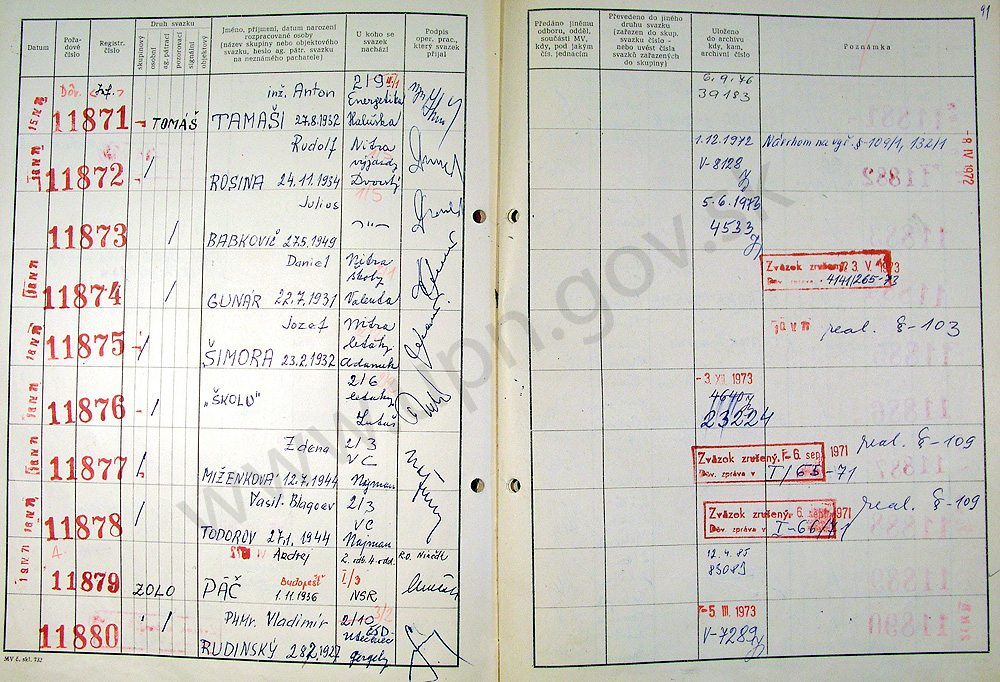 91
Datum
Pořadové číslo
Registr. číslo
Druh svazku
skupinový
osobní
ag. pátrací
pozorovací
signální
objektový
Jméno, příjmení, datum narození
rozpracované osoby
(název skupiny nebo objektového
svazku, heslo ag. pátr. svazku
na neznámého pachatele)
U koho se
svazek
nachází
Podpis
oper. prac.,
který svazek
přijal
Předáno jinému
odboru, odděl.
součásti MV,
kdy, pod jakým
čís. jednacím
Převedeno do jiného
druhu svazku
(zařazen do skup.
svazku číslo -
nebo uvést čísla
svazků zařazených
do skupiny)
Uloženo
do archívu
kdy, kam,
archívní číslo
Poznámka
inž. Anton 2/9
11871 TOMÁŠ TAMAŠI 27.8.1932 Energetika Haluška
6.9.76
39183
Rudolf Nitra
11872 ROSINA 24.11.1934 výjazdy Dvorský
1.12.1972 Návrhom na vyš. §-109/1, 132/1
V-8128
-8. IV 1972
Julius
11873 BABKOVIČ 27.5.1949 -„-
5.6.1973
4533
Daniel Nitra
11874 GUNÁR 22.7.1931 školy Valenta
Zväzok zrušený. 23. V. 1973
4141/265-73
Jozef Nitra
11875 ŠIMORA 23.2.1932 letáky Adamek
real. §-103
2/6
11876 „ŠKOLU" letáky
-3. XII. 1973
4640
23224
Zdena 2/3
11877 MIŽENKOVÁ 12.7.1944 VC Najman
Zväzok zrušený. 6. sep. 1971 real. §-109
Dôv. zpráva v I/65-71
Vasil Blagoev 2/3
11878 TODOROV 27.1.1944 VC Najman
Zväzok zrušený. 6. 1971 real. §-109
Dôv. zpráva v I-66/71
Andrej 2. odb. 4. odd.
11879 ZOLO PÁČ Budapešť 1.11.1936 I/3 NSR
12.4.85
83083
Vladimír 2/10
11880 RUDINSKÝ 28.2.1927 Gergely
-5. III 1973
V-7289
MV č. skl. 732
www.upn.gov.sk